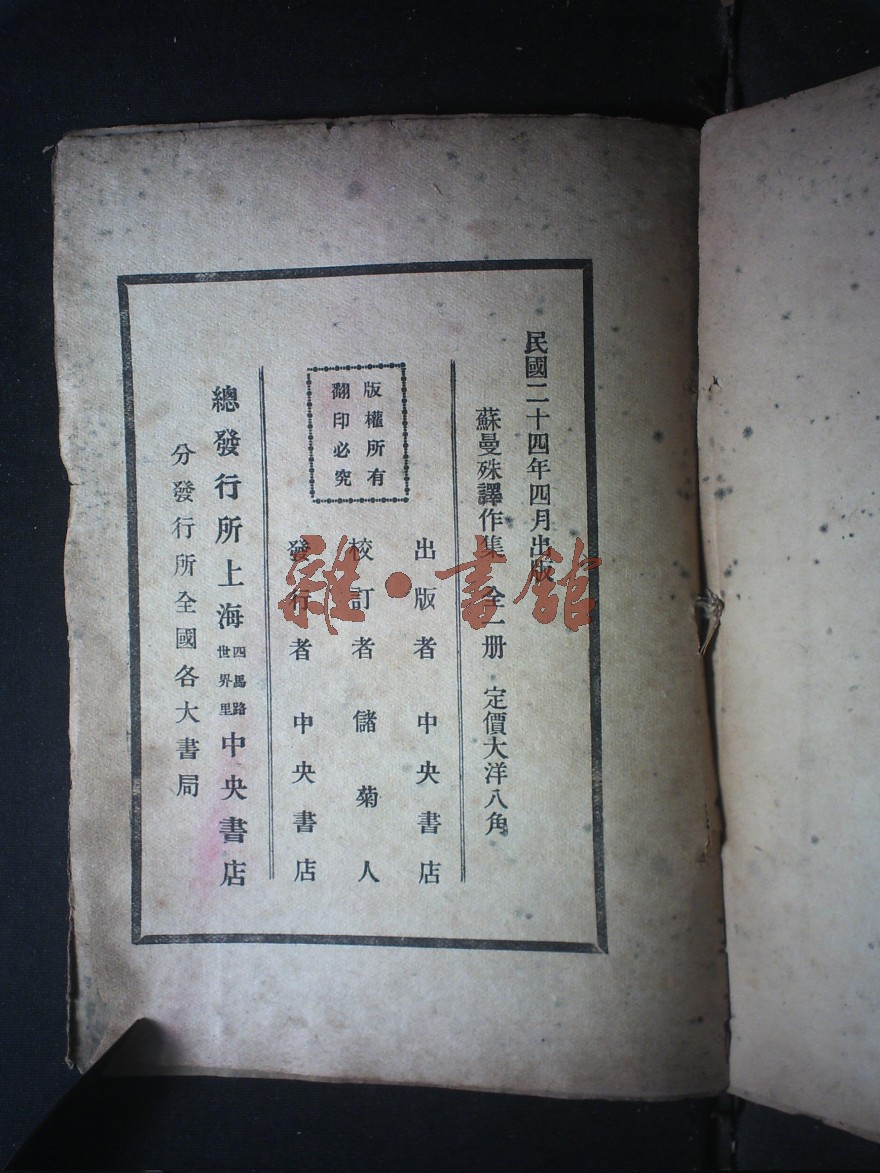 民國二十四年四月出版
蘇曼殊譯作集 全一册 定價大洋八角
出版者 中央書店
校訂者 儲菊人
發行者 中央書店
版權所有
翻印必究
總發行所上海四馬路世界里中央書店
分發行所全國各大書局
雜·書館